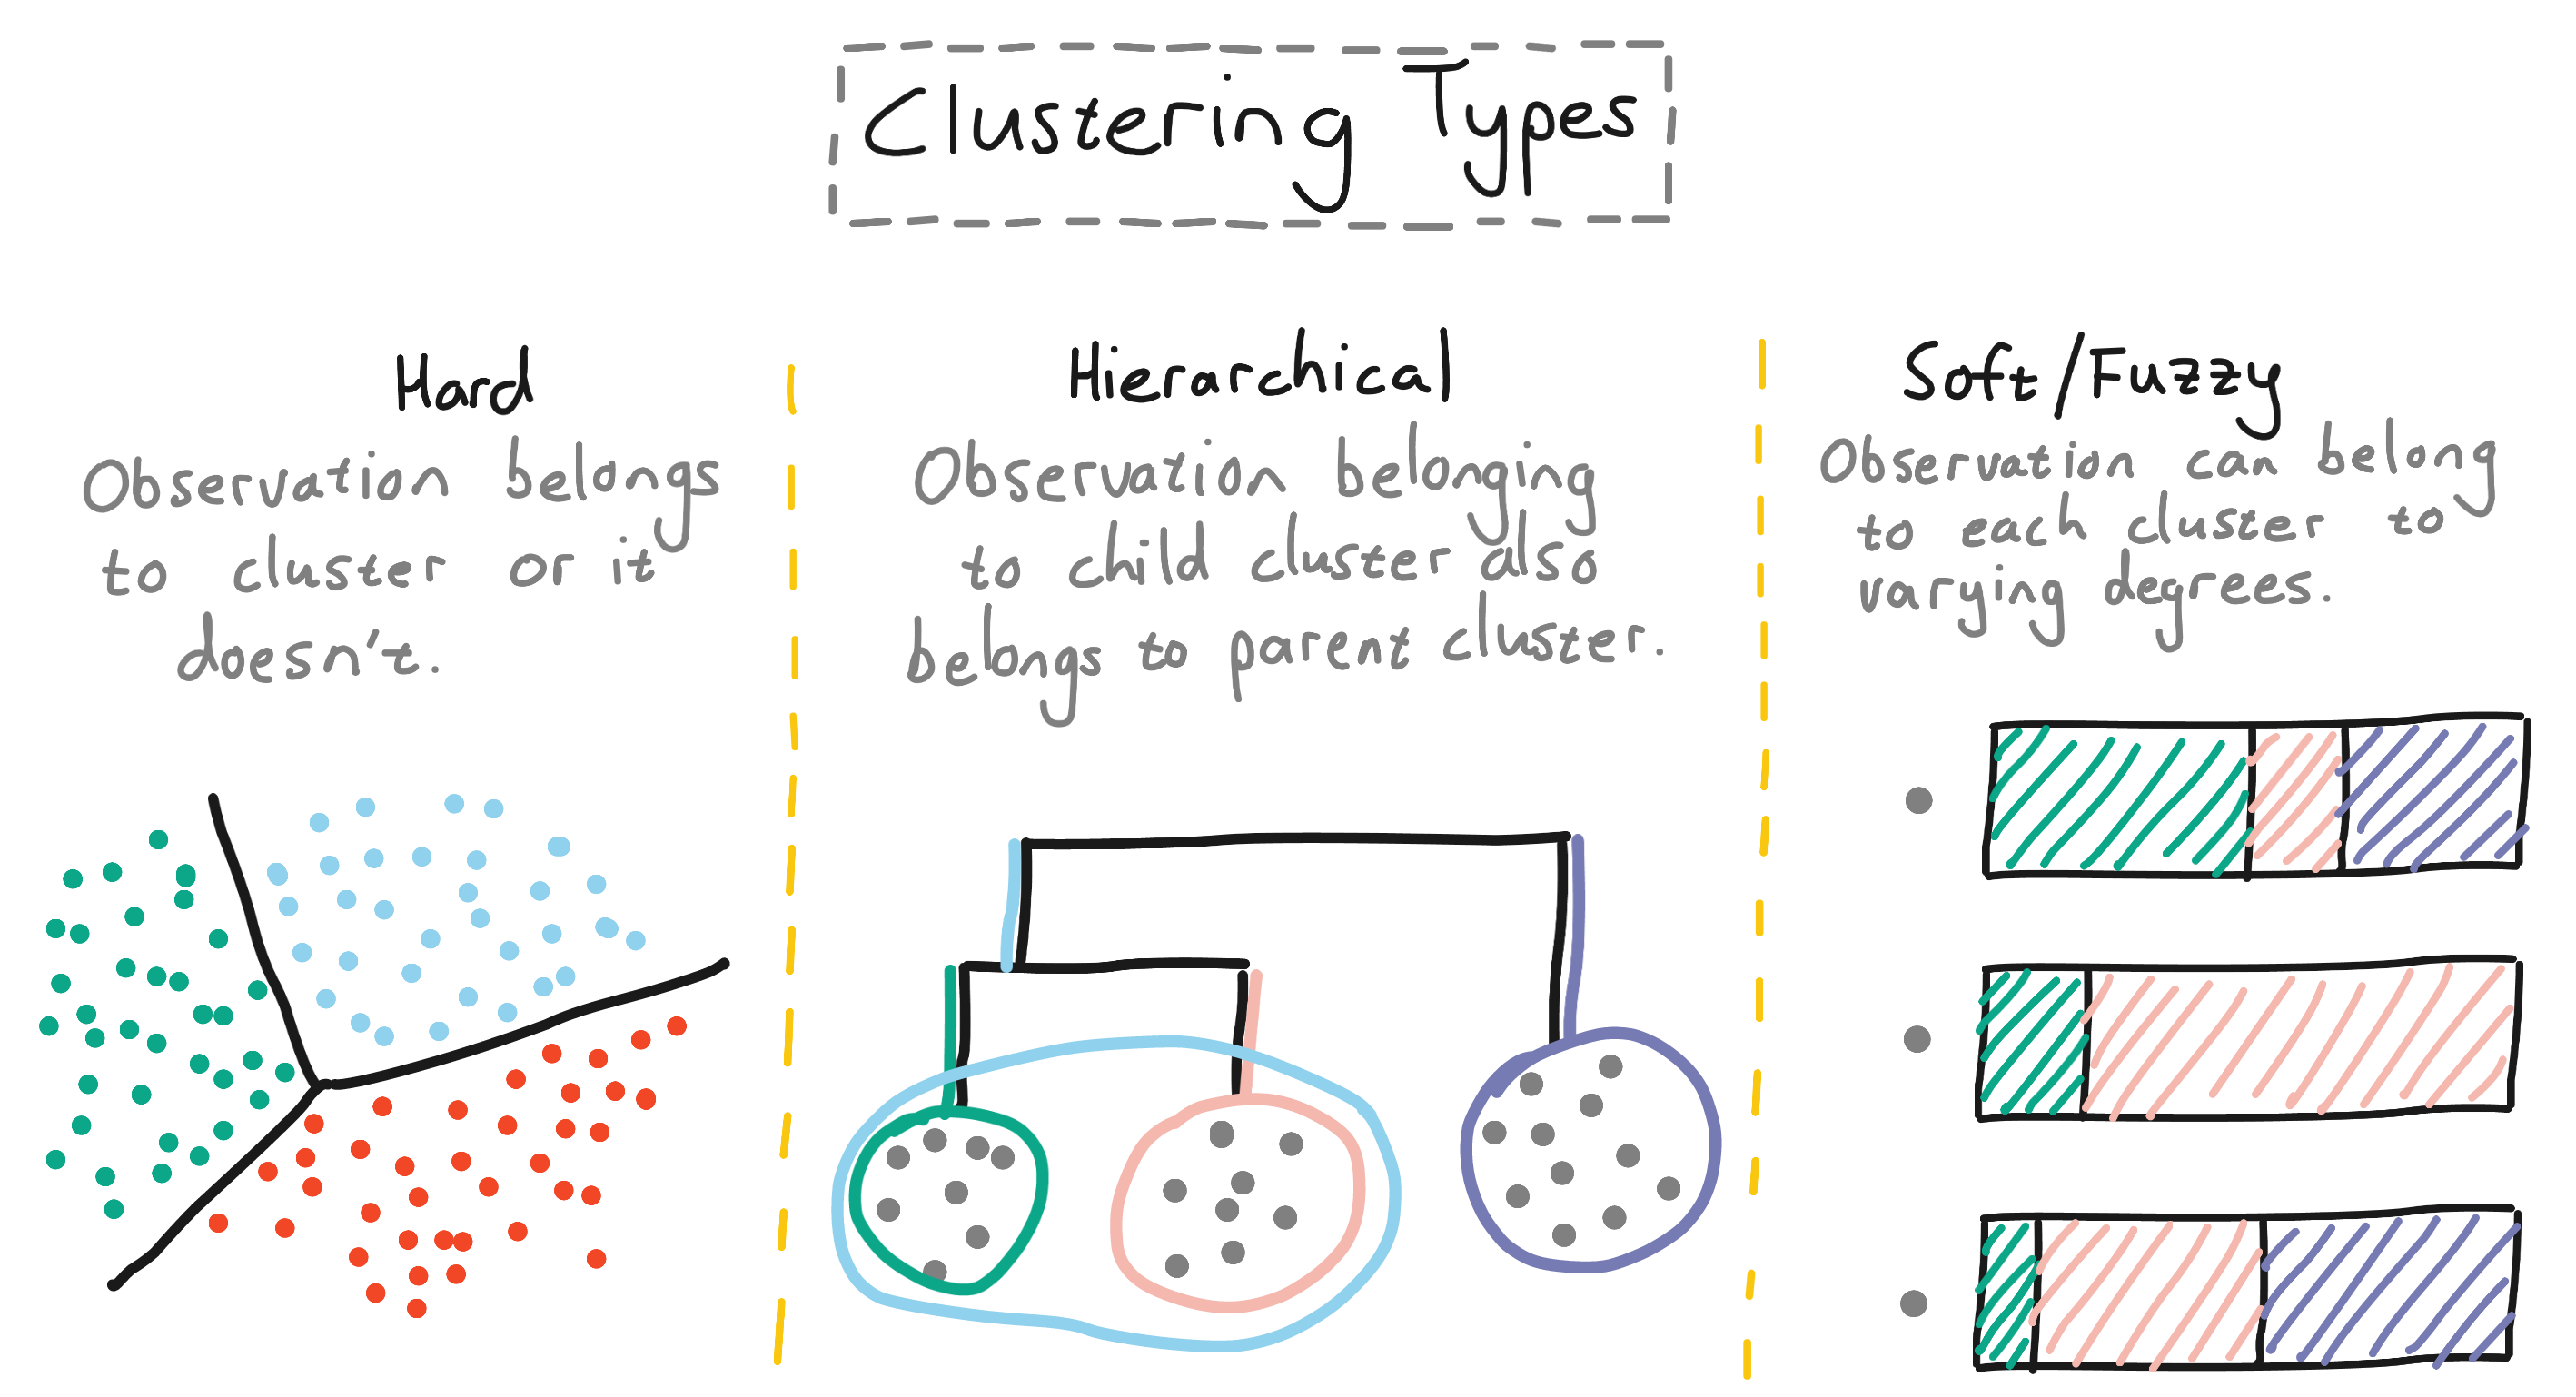 Clustering Types
Hard
Observation belongs
to cluster or it
doesn't.
Hierarchical
Observation belonging
to child cluster also
belongs to parent cluster.
Soft/Fuzzy
Observation can belong
to each cluster to
varying degrees.